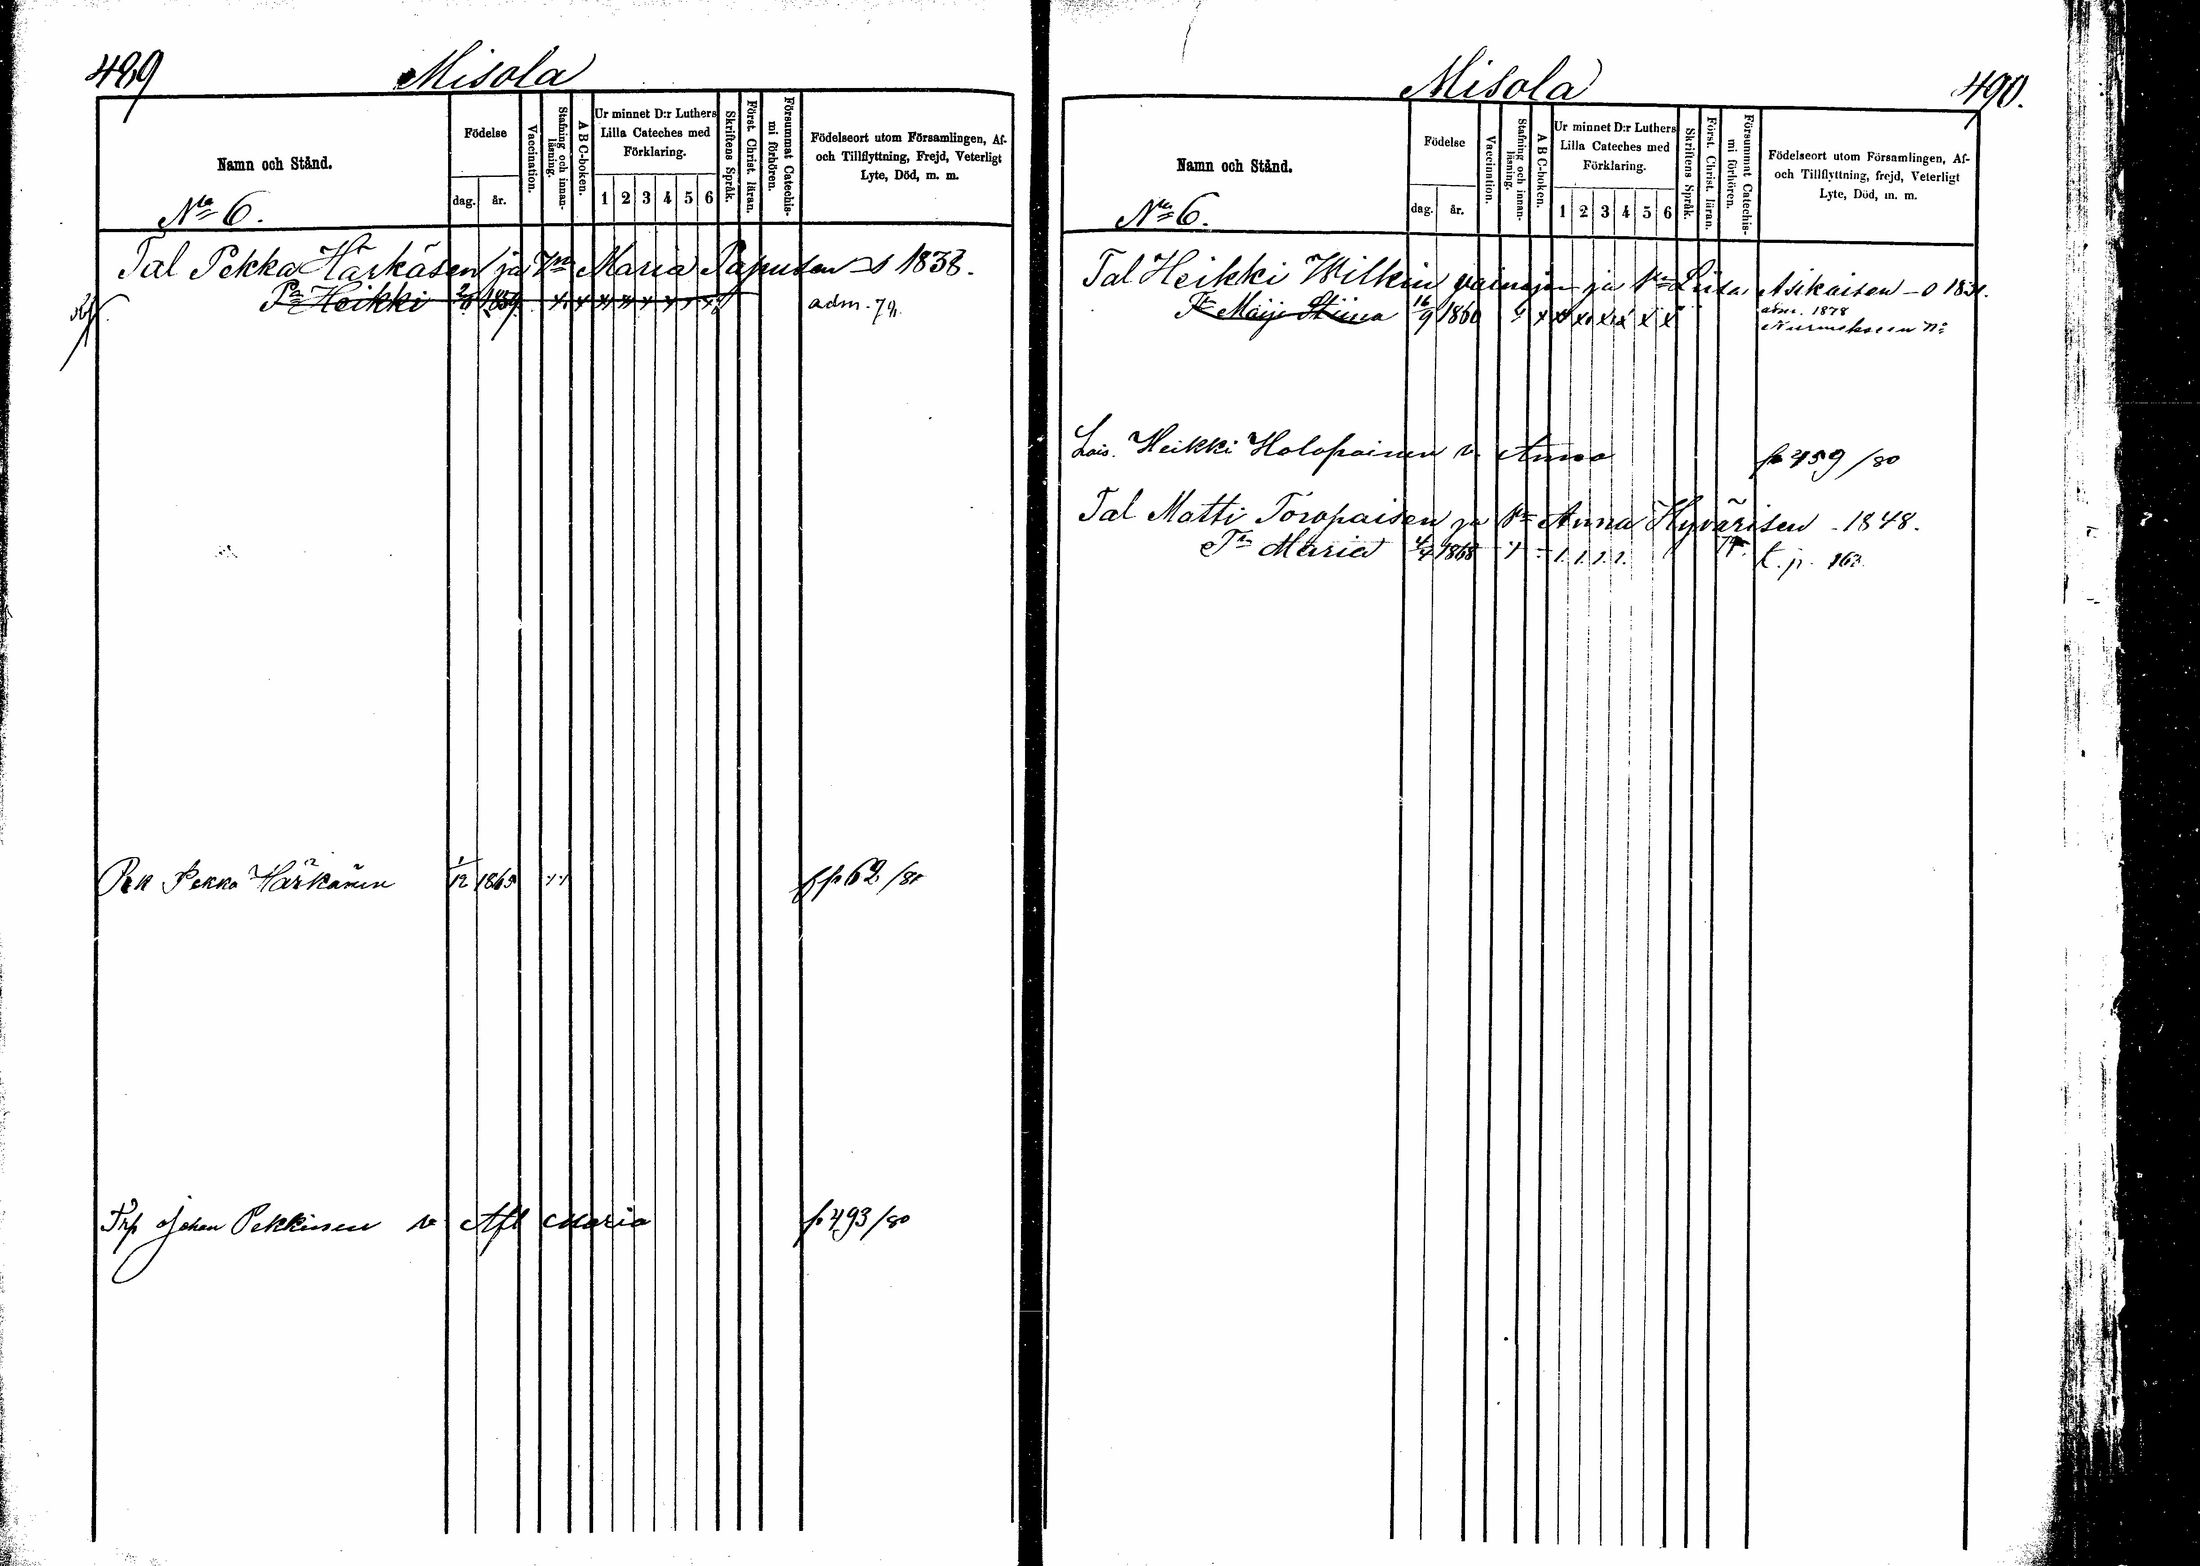 489 Misola
Namn och Stånd.
No 6.
Födelse
dag. år.
Vaccination.
Stafning och innan-
läsning.
A B C-boken.
Ur minnet D:r Luthers
Lilla Cateches med
Förklaring.
1 2 3 4 5 6
Skriftens Språk.
Först. Christ. läran.
Försummat Catechis-
mi förhören.
Födelseort utom Församlingen, Af-
och Tillflyttning, Frejd, Veterligt
Lyte, Död, m. m.
Tal Pekka Härkäsen ja Vm Maria Papusen 1838.
Pa Heikki 1859 adm.
Pekka Härkänen 1/12 1865 62/81
Johan Pekkinen v. Afl Maria p 493/80
Misola 490.
Namn och Stånd.
No 6.
Födelse
dag. år.
Vaccination.
Stafning och innan-
läsning.
A B C-boken.
Ur minnet D:r Luthers
Lilla Cateches med
Förklaring.
1 2 3 4 5 6
Skriftens Språk.
Först. Christ. läran.
Försummat Catechis-
mi förhören.
Födelseort utom Församlingen, Af-
och Tillflyttning, frejd, Veterligt
Lyte, Död, m. m.
Tal Heikki Wilkin vainajan ja Vm Liisa Asikaisen
Tr Maija Stiina 16/9 1860 x x x x x x x adm. 1878
Lois. Heikki Holopainen v. Anna p 459/80
Tal Matti Toropaisen ja Vm Anna Hyvärisen - 1848.
Tr Maria 1868 1. 1. 1. 1. t. p. 163